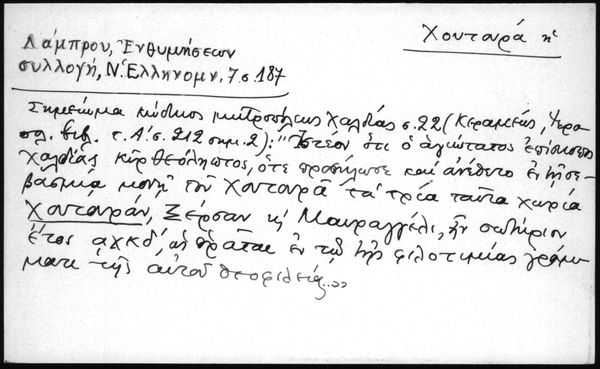 Χουτουρά ἡ
Λάμπρου, Ἐνθυμήσεων
συλλογή, Ν. Ἑλληνομν. 7. σ. 187
Σημείωμα κώδικος μητροπόλεως Χαλδίας σ. 22 (Κεραμεύς, Ἱερο-
σολ. βιβ. τ. Α΄ σ. 212 σημ. 2): "Ἰστέον ὅτι ὁ ἁγιώτατος ἐπίσκοπος
Χαλδίας κὺρ Θεόληπτος, ὅτε προσήλωσε καὶ ἀνέθετο ἐν τῇ σε-
βασμίᾳ μονῇ τοῦ Χουτουρᾶ τὰ τρία ταῦτα χωρία
Χουτουράν, Σέρσαν κὴ Μαυραγγέλι, ἦν σωτήριον
ἔτος αχκδ΄, ὡς ὁρᾶται ἐν τῷ τῆς φιλοτιμίας γράμ-
ματι τῆς αὐτοῦ θεοφιλείας..."